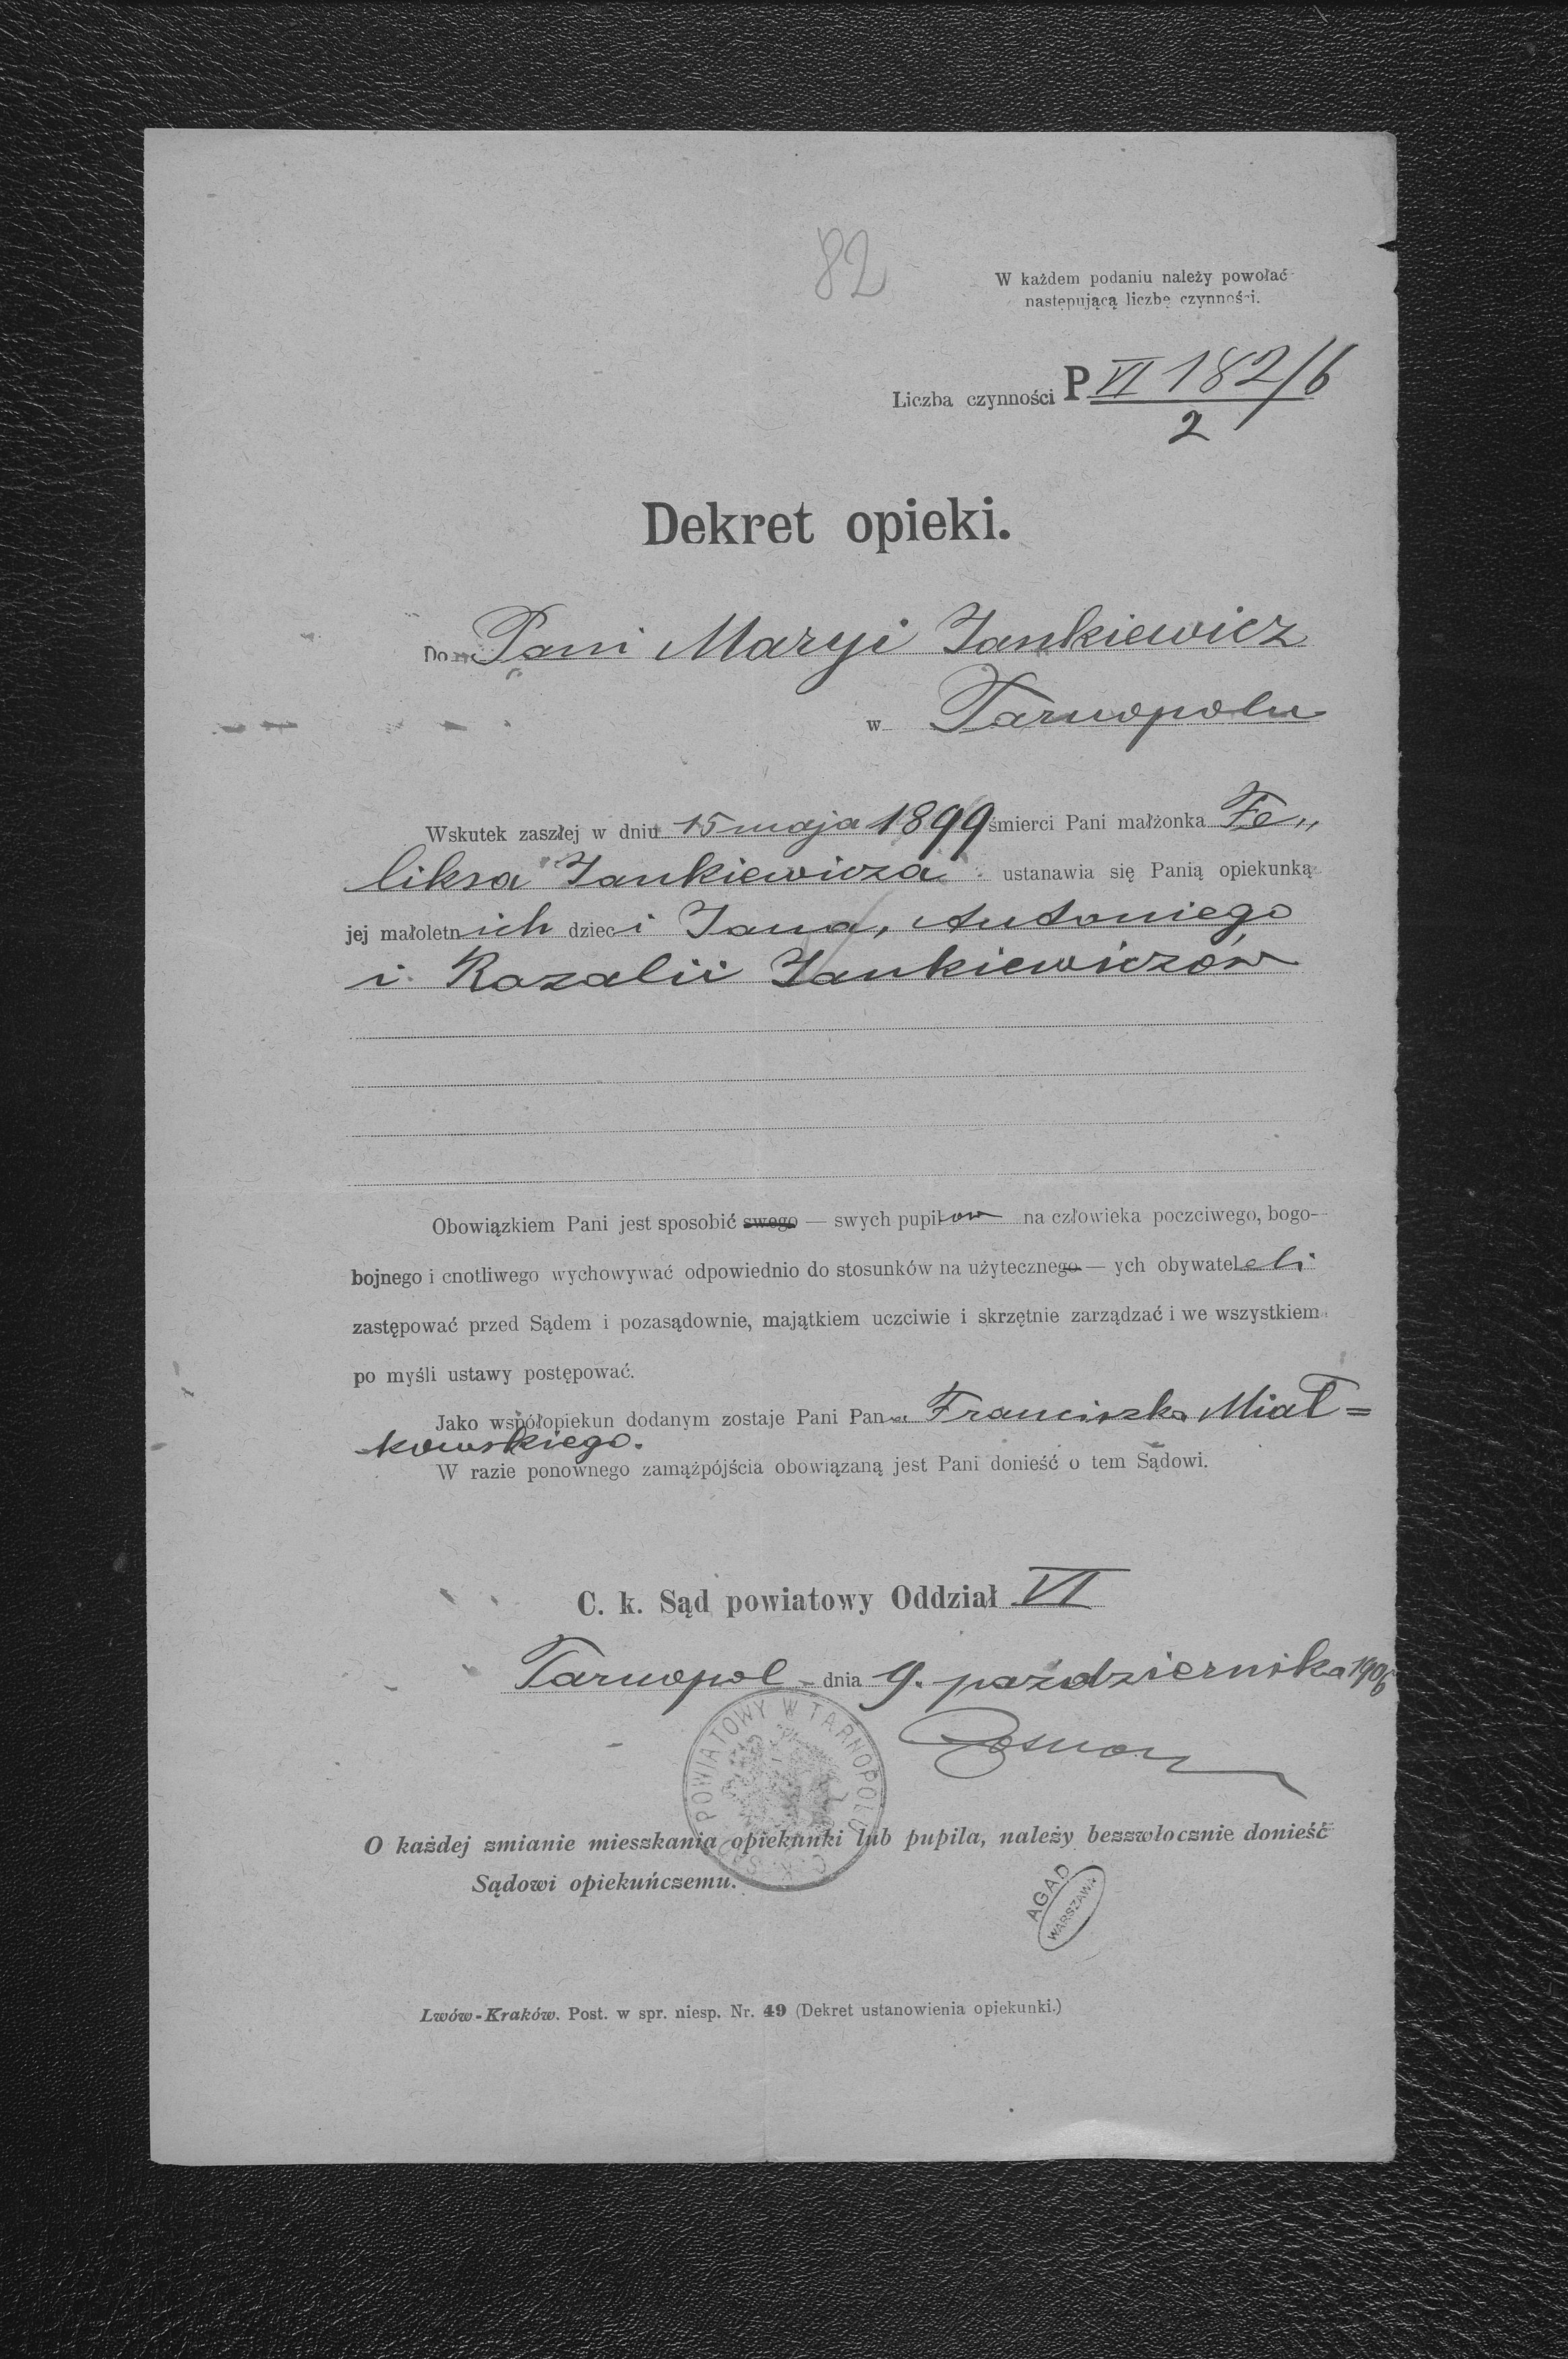 82
W każdem podaniu należy powołać
następującą liczbę czynności.
Liczba czynności P VI 182/6
2
Dekret opieki.
Do Pani Maryi Jankiewicz
w Tarnopolu
Wskutek zaszłej w dniu 15 maja 1899 śmierci Pani małżonka Fe„
liksa Jankiewicza ustanawia się Panią opiekunką
jej małoletnich dzieci Jana, Antoniego
i Rozalii Jankiewiczów
Obowiązkiem Pani jest sposobić swego — swych pupilow na człowieka poczciwego, bogo-
bojnego i cnotliwego wychowywać odpowiednio do stosunków na użytecznego — ych obywateleli
zastępować przed Sądem i pozasądownie, majątkiem uczciwie i skrzętnie zarządzać i we wszystkiem
po myśli ustawy postępować.
Jako współopiekun dodanym zostaje Pani Pana Franciszka Miał=
kowskiego.
W razie ponownego zamążpójścia obowiązaną jest Pani donieść o tem Sądowi.
C. k. Sąd powiatowy Oddział VI
Tarnopol dnia 9. października 1906
C. K. SĄD POWIATOWY W TARNOPOLU
O każdej zmianie mieszkania opiekunki lub pupila, należy bezzwłocznie donieść
Sądowi opiekuńczemu.
AGAD
WARSZAWA
Lwów-Kraków. Post. w spr. niesp. Nr. 49 (Dekret ustanowienia opiekunki.)